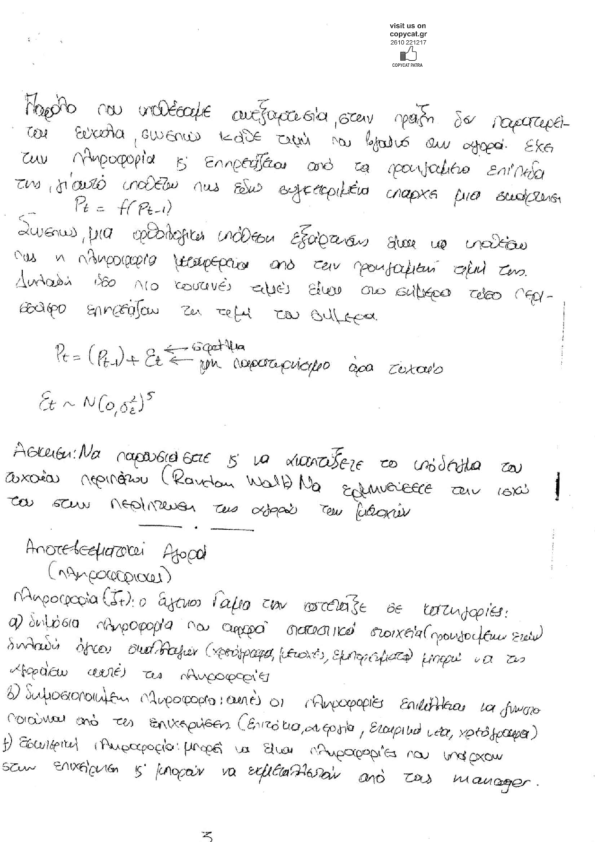 visit us on
copycat.gr
2610 221217
COPYCAT PATRA
Παρόλο που υποθέσαμε ανεξαρτησία, στην πράξη δεν παρατηρεί-
ται εύκολα, συνεπώς κάθε τιμή που βγαίνει στην αγορά έχει
την πληροφορία & επηρεάζεται από τα προηγούμενα επίπεδα
της, γι'αυτό υποθέτω πως εδώ συγκεκριμένα υπάρχει μια συνάρτηση
Pt = f(Pt-1)
Συνεπώς, μια ορθολογική υπόθεση εξάρτησης είναι να υποθέσω
πως η πληροφορία μεταφέρεται από την προηγούμενη τιμή της.
Δηλαδή όσο πιο κοντινές τιμές είναι στο σήμερα τόσο περι-
σσότερο επηρεάζουν τη τιμή του σήμερα.
Pt = (Pt-1) + Et ← σφάλμα
← μη παρατηρήσιμο άρα τυχαίο
Et ~ N(0, σε²)⁵
Άσκηση: Να παρουσιάσετε & να αναπτύξετε το υπόδειγμα του
τυχαίου περιπάτου (Random Walk) Να ερμηνεύσετε την ισχύ
του στην περίπτωση της αγοράς των μετοχών
Αποτελεσματική Αγορά
(πληροφοριακή)
πληροφορία (It): ο την σε κατηγορίες:
α) δημόσια πληροφορία που αφορά στατιστικά στοιχεία (προηγούμενων ετών)
δηλαδή όγκου συναλλαγών (χρεόγραφα, μετοχές, εμπορεύματα) μπορεί να τις
αυτές τις πληροφορίες
β) δημοσιοποιημένη πληροφορία: αυτές οι πληροφορίες να
από τις επιχειρήσεις (επιτόκια, ανεργία, εταιρικά νέα, χρεόγραφα)
γ) Εσωτερική πληροφορία: μπορεί να είναι πληροφορίες που υπάρχουν
στην επιχείρηση & μπορούν να εκμεταλλευτούν από τους manager.
3